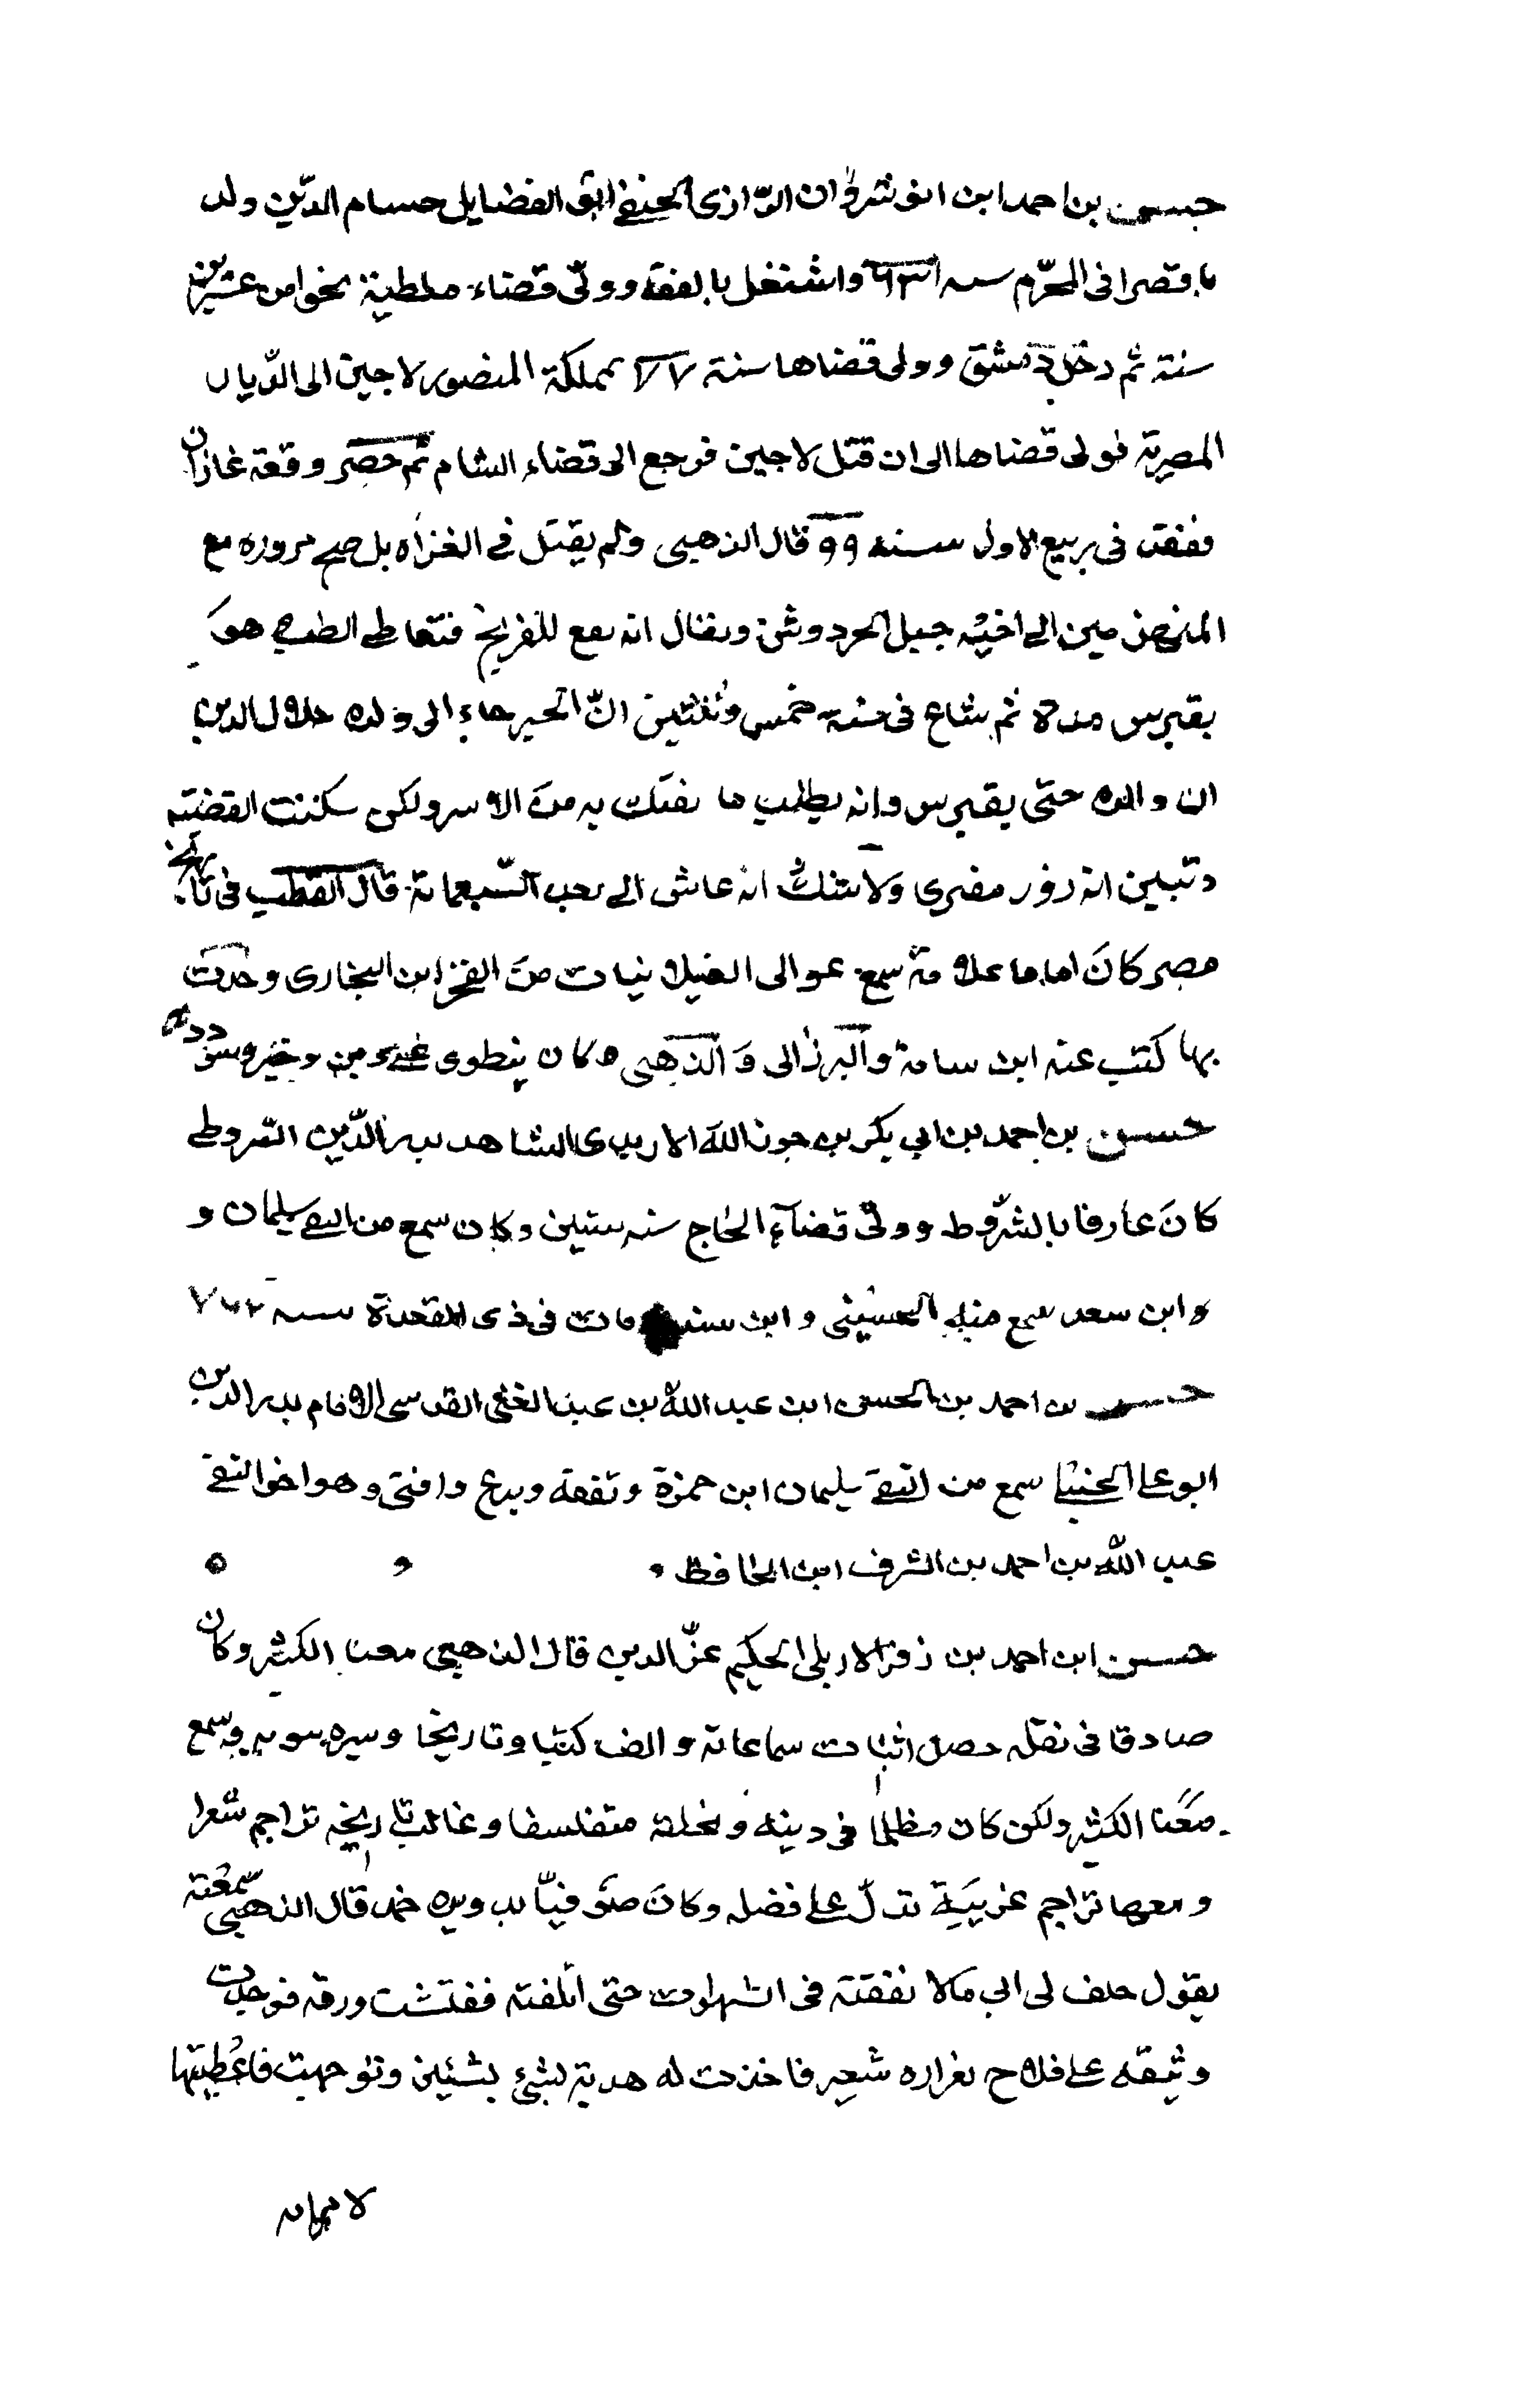 حسن بن احمد ابن انوشروان الرّازى الحنفى ابو الفضايل حسام الدّين ولد
باقصرا فى المحرّم سنه ٦٣١ واشتغل بالفقه وولّى قضاء ملطية نحوا من عشرين
سنة ثم دخل دمشق وولى قضاها سنة ٧٧ مملكة المنصور لاجين الى الدّيار
المصرية فولى قضاها الى ان قتل لاجين فرجع الى قضاء الشام ثم حضر وقعة غازان
ففقد فى ربيع الاول سنه ٩٩ قال الذهبى ولم يقتل فى الغزاه بل صح مروره مع
المنهزمين الى اخيه جبل الجرد وثن ويقال انه بيع للفرنج فتعاطى الطب هو
بقبرس مدة ثم شاع فى سنة خمس وثلثين انّ الخبر جاء الى ولده جلال الدين
ان والده حتى بقبرس وانه يطلب ما يفتك به من الاسر ولكن سكنت القضية
وتبين انه زور مفترى ولا شك انه عاش الى بعد السّبعماية قال القطب فى تاريخ
مصر كان اماما علامة سمع عوالى الغيلانيات من الفخر ابن البخارى وحدث
بها كتب عنه ابن سامة والبرزالى والذهبى وكان ينطوى على دين وخير وسؤدده
حسن بن احمد بن ابى بكر بن حرز الله الاربدى الشاهد بدر الدّين الشروطى
كان عارفا بالشّروط وولّى قضآء الحاج سنه ستين وكان سمع من التقى سليمان و
و ابن سعد سمع منه الحسينى وابن سند مات فى ذى القعدة سنه ٧٦٢
حسن بن احمد بن الحسن ابن عبد الله بن عبد الغنى القدسى الامام بدر الدين
ابو على الحنبلى سمع من التقى سليمان ابن حمزة وتفقه وبرع وافتى وهو اخو التقى
عبد الله بن احمد بن الشرف ابن الحافظ
حسن ابن احمد بن زفر الاربلى الحكيم عزّ الدين قال الذهبى معنا الكثير وكان
صادقا فى نقله حصل اثبات سماعاته والف كتبا وتاريخا وسيره نبويه وسمع
معنا الكثير ولكن كان مظلما فى دينه ونحلته متفلسفا وغالب تاريخه تراجم شعرا
ومعها تراجم غريبة تدلّ على فضله وكان صوفيّا بدويره حمد قال الذهبى سمعته
يقول خلف لى ابى مالا نفقته فى الشهوات حتى اتلفته ففتشت ورقه فوجدت
وثيقه على فلاح بغراره شعير فاخذت له هدية بشئ بشئين وتوجهت فاعطيتها